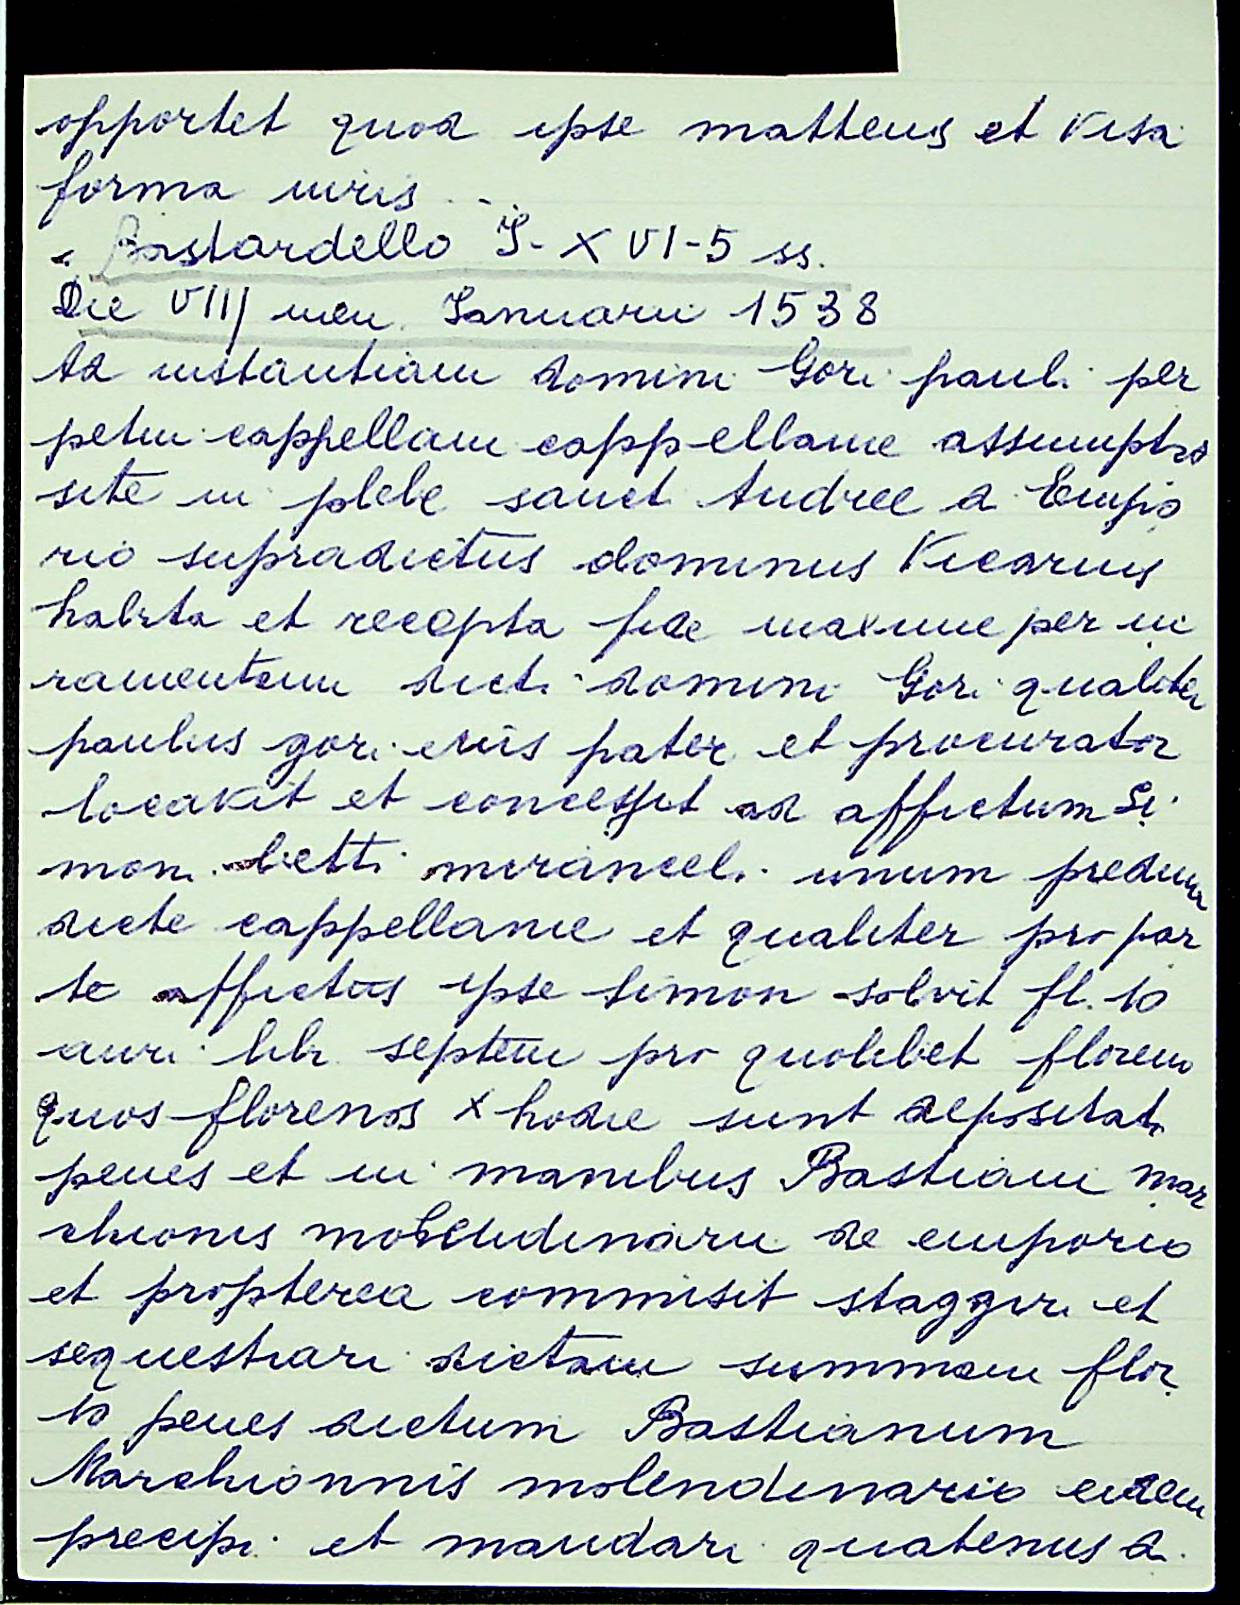 opportet quod ipse mattheus et visa
forma iuris ...
Bastardello I - XVI-5 ss.
Die VIII men. Januarii 1538
Ad instantiam domini Gori pauli per
petui cappellani cappellanie assumptio
site in plebe sancti Andree d Empo
rio supradictus dominus Vicarius
habita et recepta fide maxime per iu
ramentum dicti domini Gori qualiter
paulus gori eius pater et procurator
locavit et concessit ad affictum Si
moni betti miranceli unum predium
dicte cappellanie et qualiter pro par
te affictus ipse Simon solvit fl. 10
auri libr septem pro quolibet floreno
quos florenos x hodie sunt depositati
penes et in manibus Bastiani mar
chionis molendinarii de emporio
et propterea commisit staggiri et
sequestrari dictam summam flor
10 penes dictum Bastianum
Marchionnis molendinario eidem
precipi et mandari quatenus d.